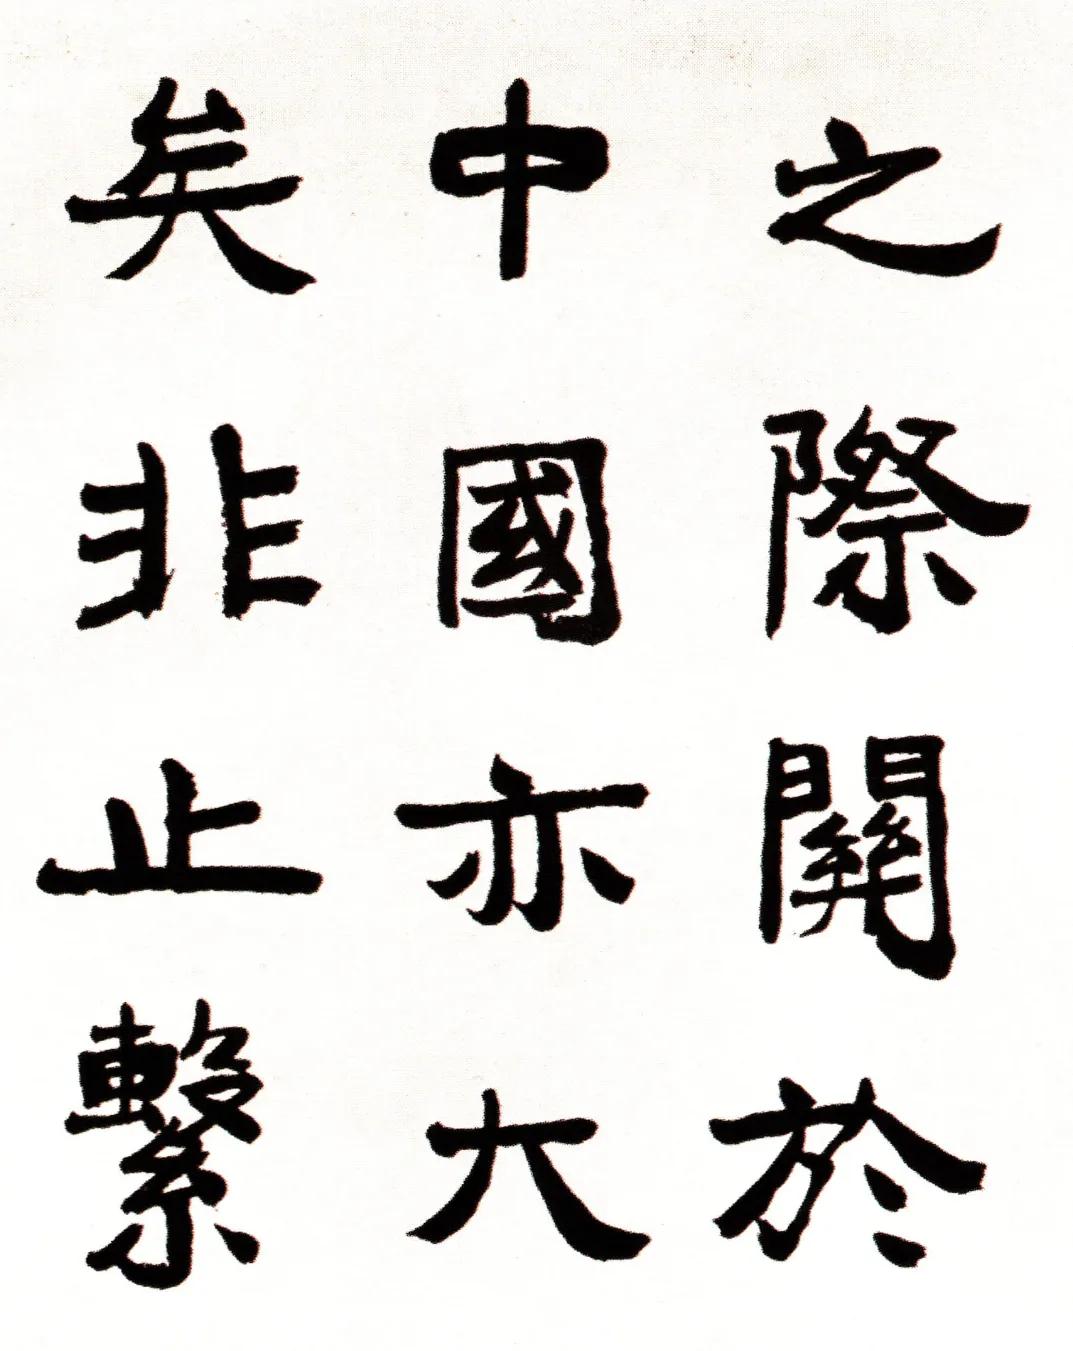 之際關於
中國亦大
矣非止繫